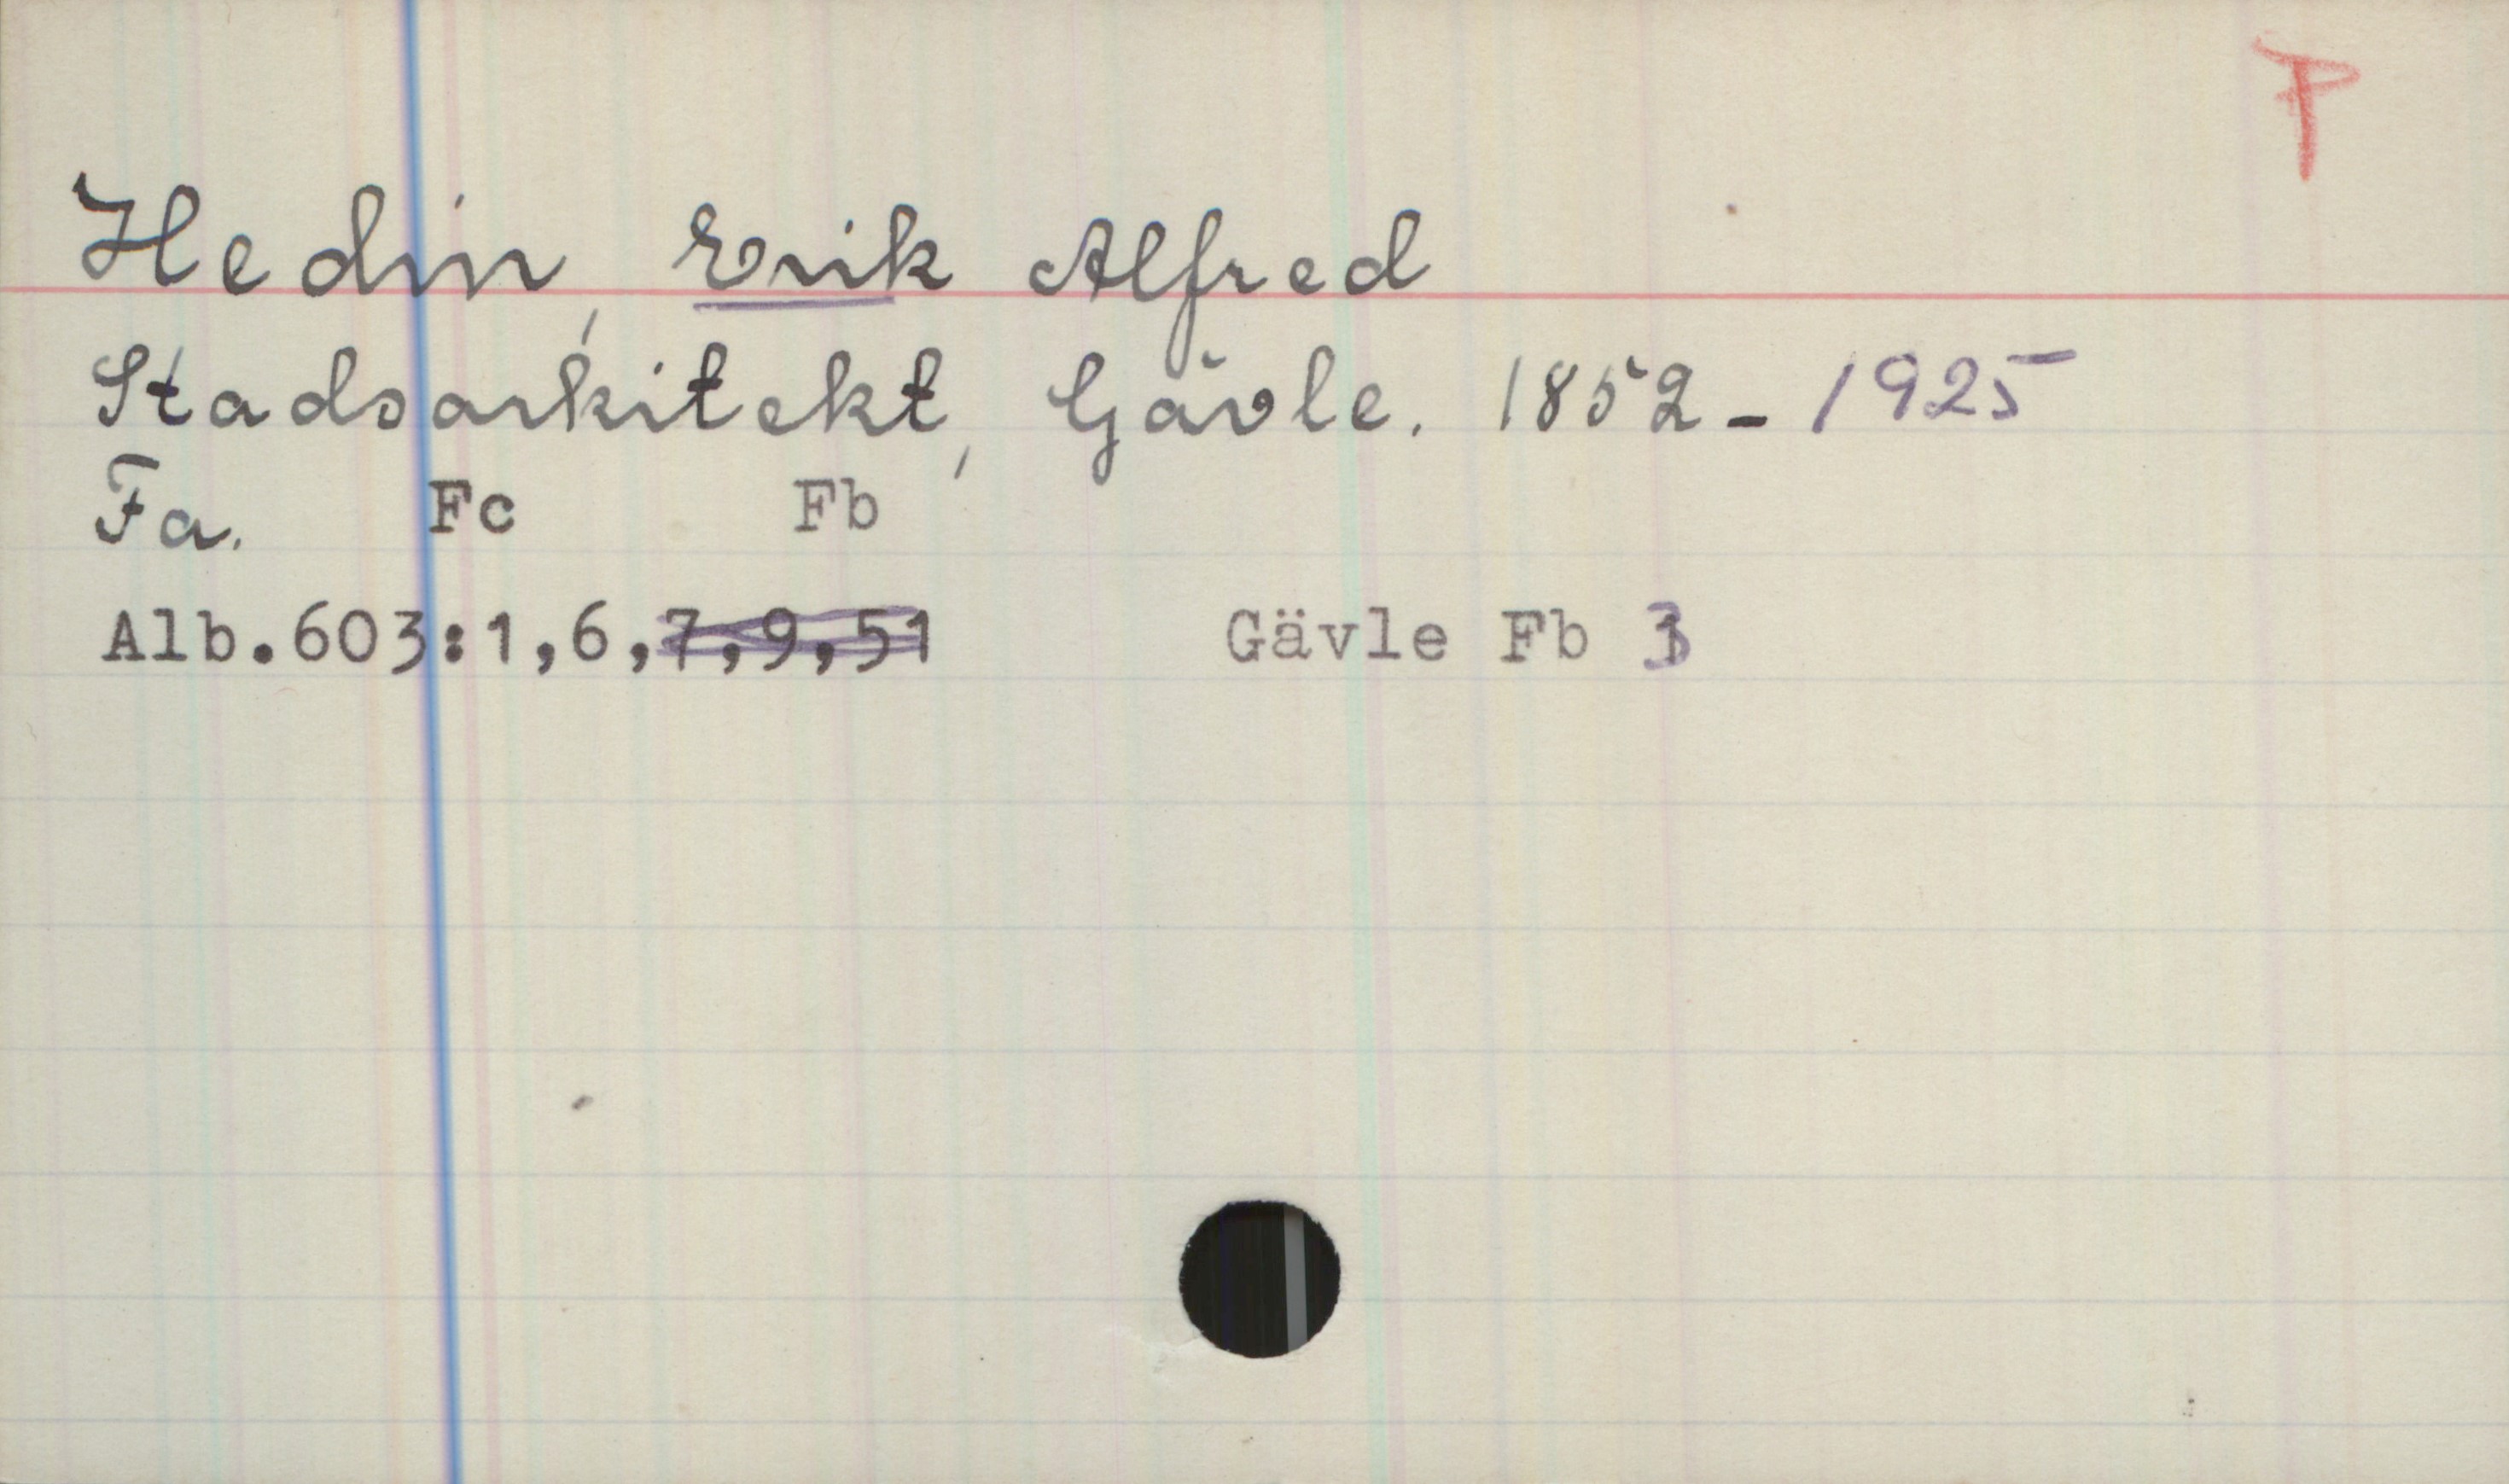 P
Hedin, Erik Alfred
Stadsarkitekt, Gävle. 1852-1925
Fa. Fc Fb
Alb.603:1,6,7,9,51 Gävle Fb 3